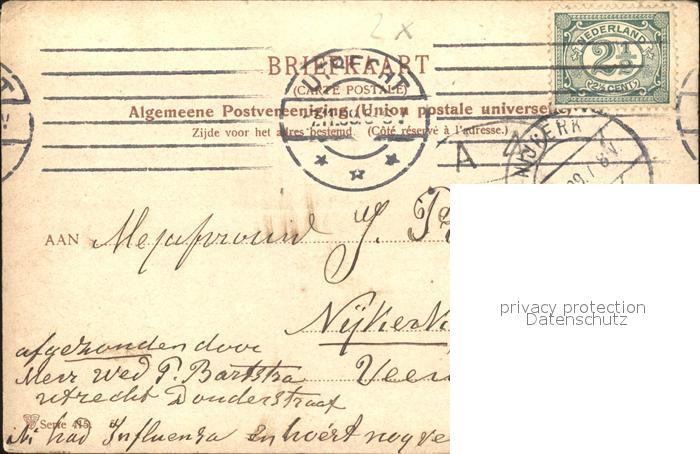 2 x
NEDERLAND
2½
(2½ CENT)
BRIEFKAART
UTRECHT
(CARTE POSTALE)
Algemeene Postvereeniging (Union postale universelle)
Zijde voor het adres bestemd. (Côté réservé à l'adresse.)
A
NIJKERK
AAN Mejufvrouw J.
Nijkerk
privacy protection
Datenschutz
afgezonden door
Mevr Wed P. Bartstra
Utrecht Donderstraat
Serie 415.
had Influenza en hoest nog